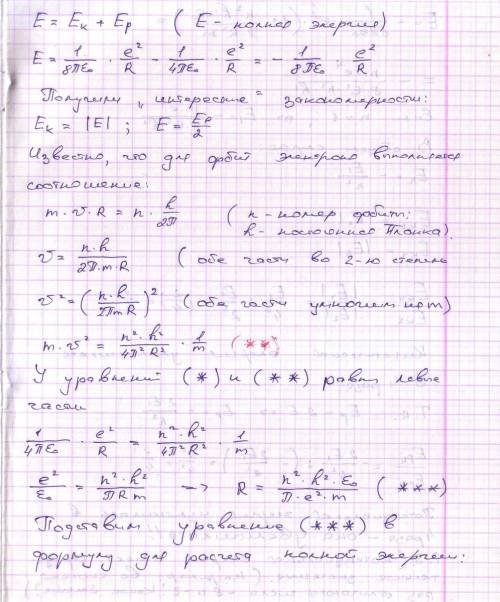 E = Eк + Ep ( E - полная энергия)
E = 1/8πε₀ · e²/R - 1/4πε₀ · e²/R = - 1/8πε₀ e²/R
Получили „интересные" закономерности:
Eк = |E| ; E = Ep/2
Известно, что для орбит электрона выполняется
соотношение:
m · v · R = n · h/2π ( n - номер орбиты;
h - постоянная Планка).
v = n·h/2π·m·R ( обе части во 2-ю степень
v² = (n·h/2πmR)² ( обе части умножим на m)
m · v² = n²·h²/4π²R² · 1/m (**)
У уравнений (*) и (**) равны левые
части
1/4πε₀ · e²/R = n²·h²/4π²R² · 1/m
e²/ε₀ = n²·h²/πRm —> R = n²·h²·ε₀/π·e²·m (***)
Подставим уравнение (***) в
формулу для расчета полной энергии: